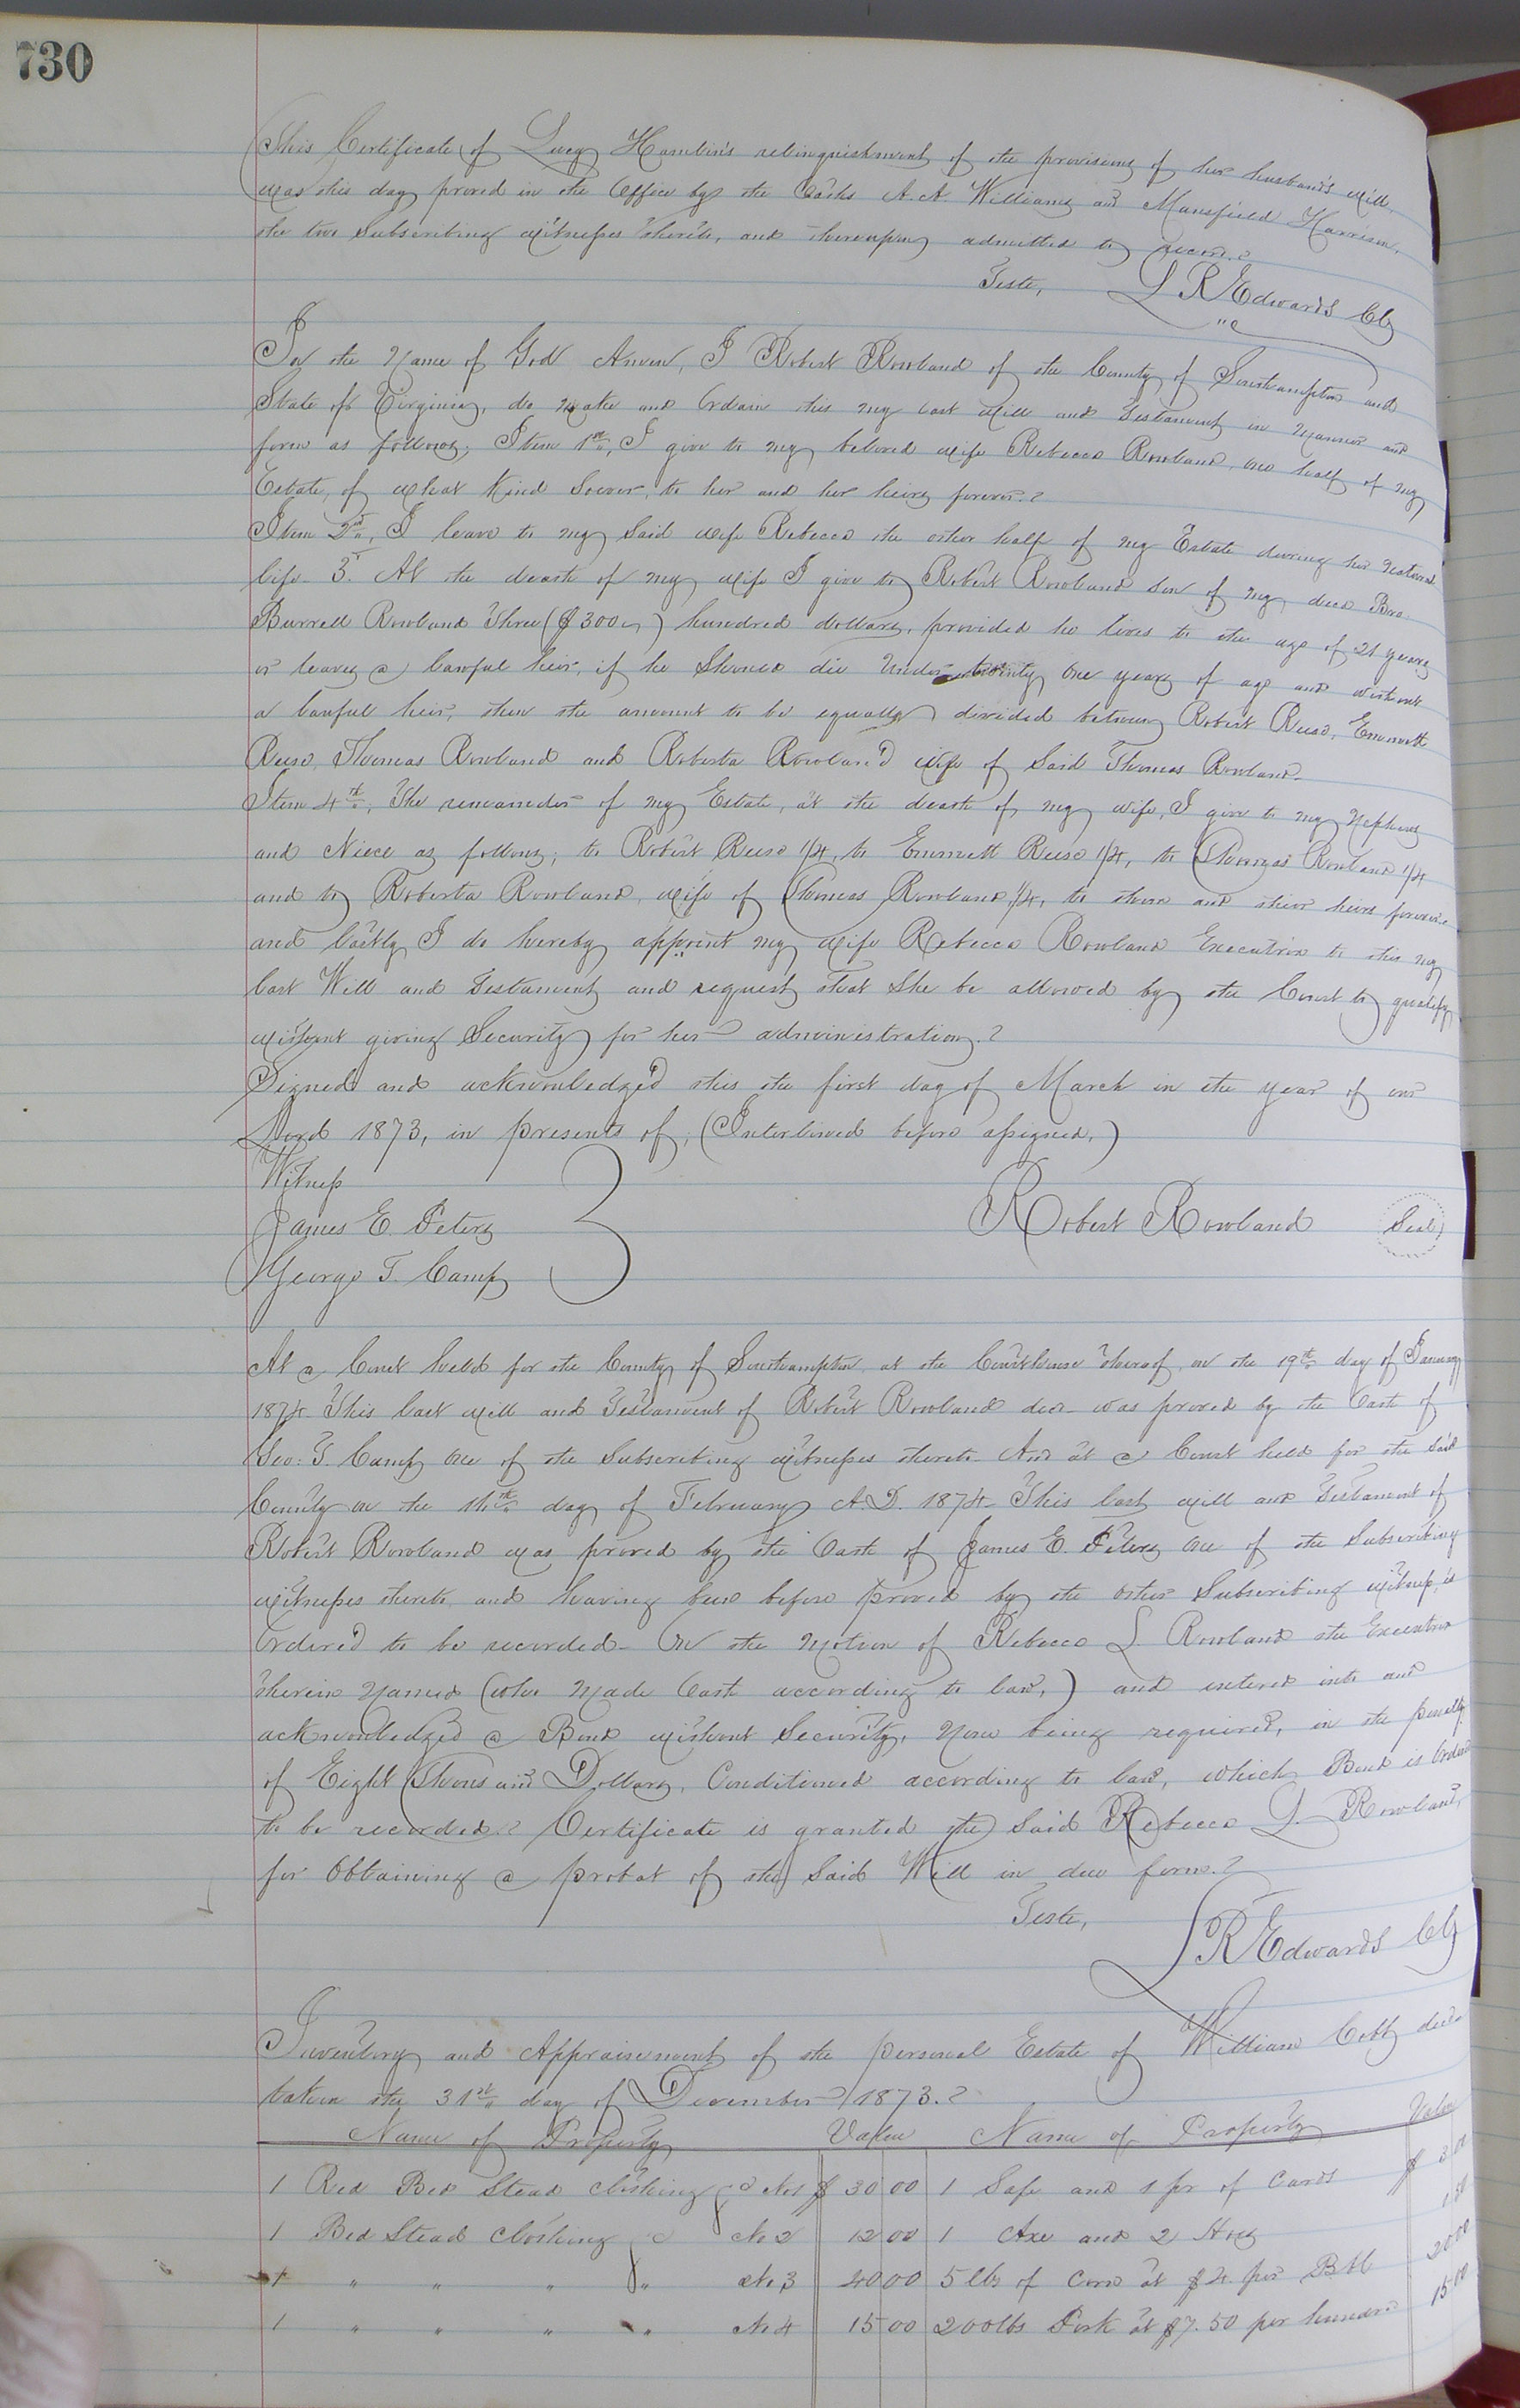 730
This Certificate of Lucy Hamlin's relinquishment of the provisions of her husband's will,
was this day proved in the Office by the Oaths A. A. Williams and Mansfield Harrison,
the two Subscribing witnesses thereto, and thereupon admitted to record.
Teste, L R Edwards Clk
In the Name of God Amen, I Robert Rowland of the County of Southampton and
State of Virginia, do make and Ordain this my last will and Testament in manner and
form as follows; Item 1st, I give to my beloved wife Rebecca Rowland, one half of my
Estate, of what Kind Soever, to her and her heirs forever.
Item 2nd, I leave to my Said wife Rebecca the other half of my Estate during her natural
life. 3d. At the death of my wife I give to Robert Rowland son of my decd Bro.
Burrell Rowland Three ($300) hundred dollars, provided he lives to the age of 21 years
or leaves a lawful heir, if he Should die Under twenty One years of age and without
a lawful heir, then the amount to be equally divided between Robert Reese, Emmett
Reese, Thomas Rowland and Roberta Rowland wife of Said Thomas Rowland.
Item 4th. The remainder of my Estate, at the death of my wife, I give to my Nephews
and Niece as follows; to Robert Reese 1/4, to Emmett Reese 1/4, to Thomas Rowland 1/4
and to Roberta Rowland, wife of Thomas Rowland, 1/4, to them and their heirs forever.
and lastly I do hereby appoint my wife Rebecca Rowland Executrix to this my
last Will and Testament and request that She be allowed by the Court to qualify
without giving Security for her administration.
Signed and acknowledged this the first day of March in the year of our
Lord 1873, in presents of; (Interlined before assigned,)
Witness
James E. Peters
Robert Rowland Seal
George T. Camp
At a Court held for the County of Southampton, at the Courthouse thereof, on the 19th day of January
1874. This last will and Testament of Robert Rowland decd was proved by the Oath of
Geo: T. Camp One of the Subscribing witnesses thereto And at a Court held for the Said
County on the 16th day of February A.D. 1874. This last will and Testament of
Robert Rowland was proved by the Oath of James E. Peters One of the Subscribing
witnesses thereto, and having been before proved by the other Subscribing witness, is
Ordered to be recorded. On the Motion of Rebecca L. Rowland the Executrix
therein Named (who Made Oath according to law,) and entered into and
acknowledged a Bond without Security, None being required, in the penalty
of Eight Thousand Dollars, Conditioned according to law, which Bond is Ordered
to be recorded. Certificate is granted the Said Rebecca L. Rowland,
for Obtaining a probat of the Said Will in due form.
Teste,
L R Edwards Clk
Inventory and Appraisement of the personal Estate of William Cobb decd
taken the 31st day of December 1873.
Name of Property Value Name of Property Value
1 Bed Bed Stead Clothing &c No 1 $ 30 00 1 Safe and 1 pr of Cards $ 3 00
1 Bed Stead Clothing &c No 2 12 00 1 Axe and 2 Hoes
1 " " " " No 3 40 00 5 lbs of Corn at $4 per Bbl 20 00
1 " " " " No 4 15 00 200 lbs Pork at $7.50 per hundred 15 00